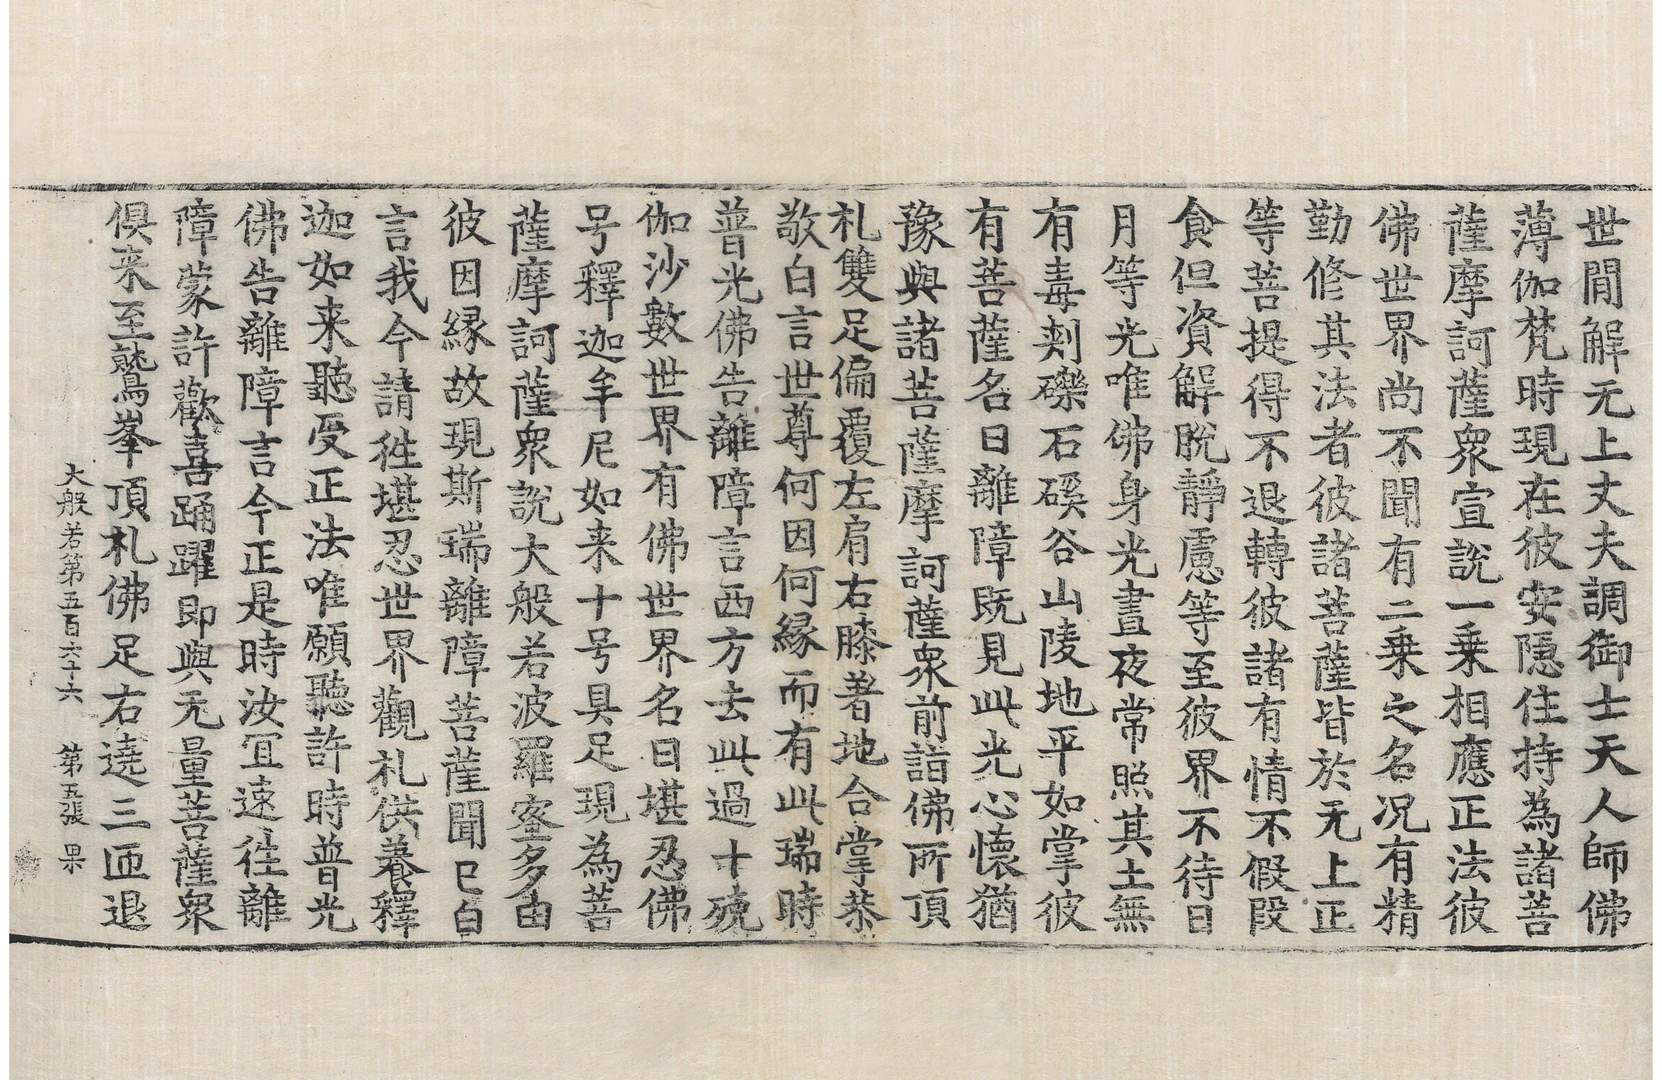 世間解无上丈夫調御士天人師佛
薄伽梵時現在彼安隱住持為諸菩
薩摩訶薩衆宣說一乗相應正法彼
佛世界尚不聞有二乗之名况有精
勤修其法者彼諸菩薩皆於无上正
等菩提得不退轉彼諸有情不假段
食但資解脫靜慮等至彼界不待日
月等光唯佛身光晝夜常照其土無
有毒刺礫石磎谷山陵地平如掌彼
有菩薩名曰離障既見此光心懷猶
豫與諸菩薩摩訶薩衆前詣佛所頂
礼雙足偏覆左肩右膝著地合掌恭
敬白言世尊何因何緣而有此瑞時
普光佛告離障言西方去此過十殑
伽沙數世界有佛世界名曰堪忍佛
号釋迦牟尼如来十号具足現為菩
薩摩訶薩衆說大般若波羅蜜多由
彼因緣故現斯瑞離障菩薩聞已白
言我今請往堪忍世界觀礼供養釋
迦如来聽受正法唯願聽許時普光
佛告離障言今正是時汝冝速往離
障蒙許歡喜踊躍即與无量菩薩衆
俱来至鷲峯頂礼佛足右遶三匝退
大般若第五百六十六 第五張 果